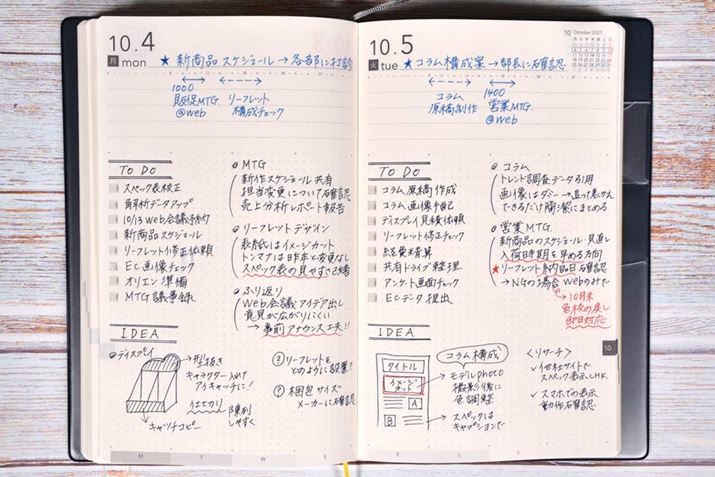 10.4
月 mon
★新商品スケジュール→各部に打診
1000
販促MTG.
@web
リーフレット
構成チェック
TO DO
スペック表校正
解析データアップ
10/13 Web会議予約
新商品スケジュール
リーフレット修正依頼
EC画像チェック
オリエン準備
MTG議事録
MTG
新作スケジュール共有
担当変更について確認
売上分析レポート報告
リーフレットデザイン
表紙はイメージカット
トンマナは昨年と変更なし
スペック表の見やすさ
ふり返り
Web会議アイデア出し
意見が広がりにくい
→事前アナウンス工夫!!
IDEA
ディスプレイ
→型抜き
キャラクター
アイキャッチに!
仕切り
陳列
しやすく
キャッチコピー
? リーフレットを
どのように設置?
? 梱包サイズ
メーカーに確認
M T W T F S S
10.5
火 tue
★コラム構成案→部長に確認
コラム
原稿制作
1400
営業MTG.
@web
10 October 2021
TO DO
コラム原稿作成
コラム画像手配
ディスプレイ見積依頼
リーフレット修正チェック
経費精算
共有ドライブ整理
アンケート画面チェック
ECデータ提出
コラム
トレンド調査データ引用
画像はダミー→追って差しかえ
できるだけ簡潔にまとめる
営業MTG
新商品のスケジュール見直し
入荷時期を早める方向
★リーフレット納品日確認
→NGの場合 Webのみで
→10月末
色校の戻し
即日対応
10
IDEA
タイトル
イメージ
カット
A
B
コラム構成
モデルphoto
撮影分後に
色調整
スペックは
キャプションで
<リサーチ>
✓ 他社サイトで
スペック表示CHK.
✓ スマホでの表示
動作確認
M T W T F S S